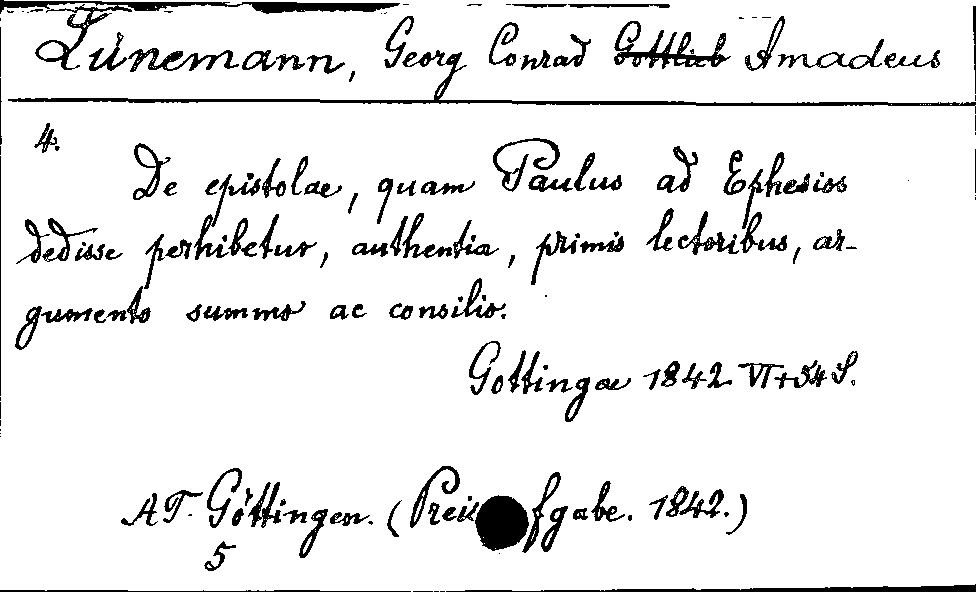 Lünemann, Georg Conrad Gottlieb Amadeus
4.
De epistolae, quam Paulus ad Ephesios
dedisse perhibetur, authentia, primis lectoribus, ar-
gumento summo ac consilio.
Gottingae 1842. VI + 54 S.
AT. Göttingen. (Preis fgabe. 1842.)
5